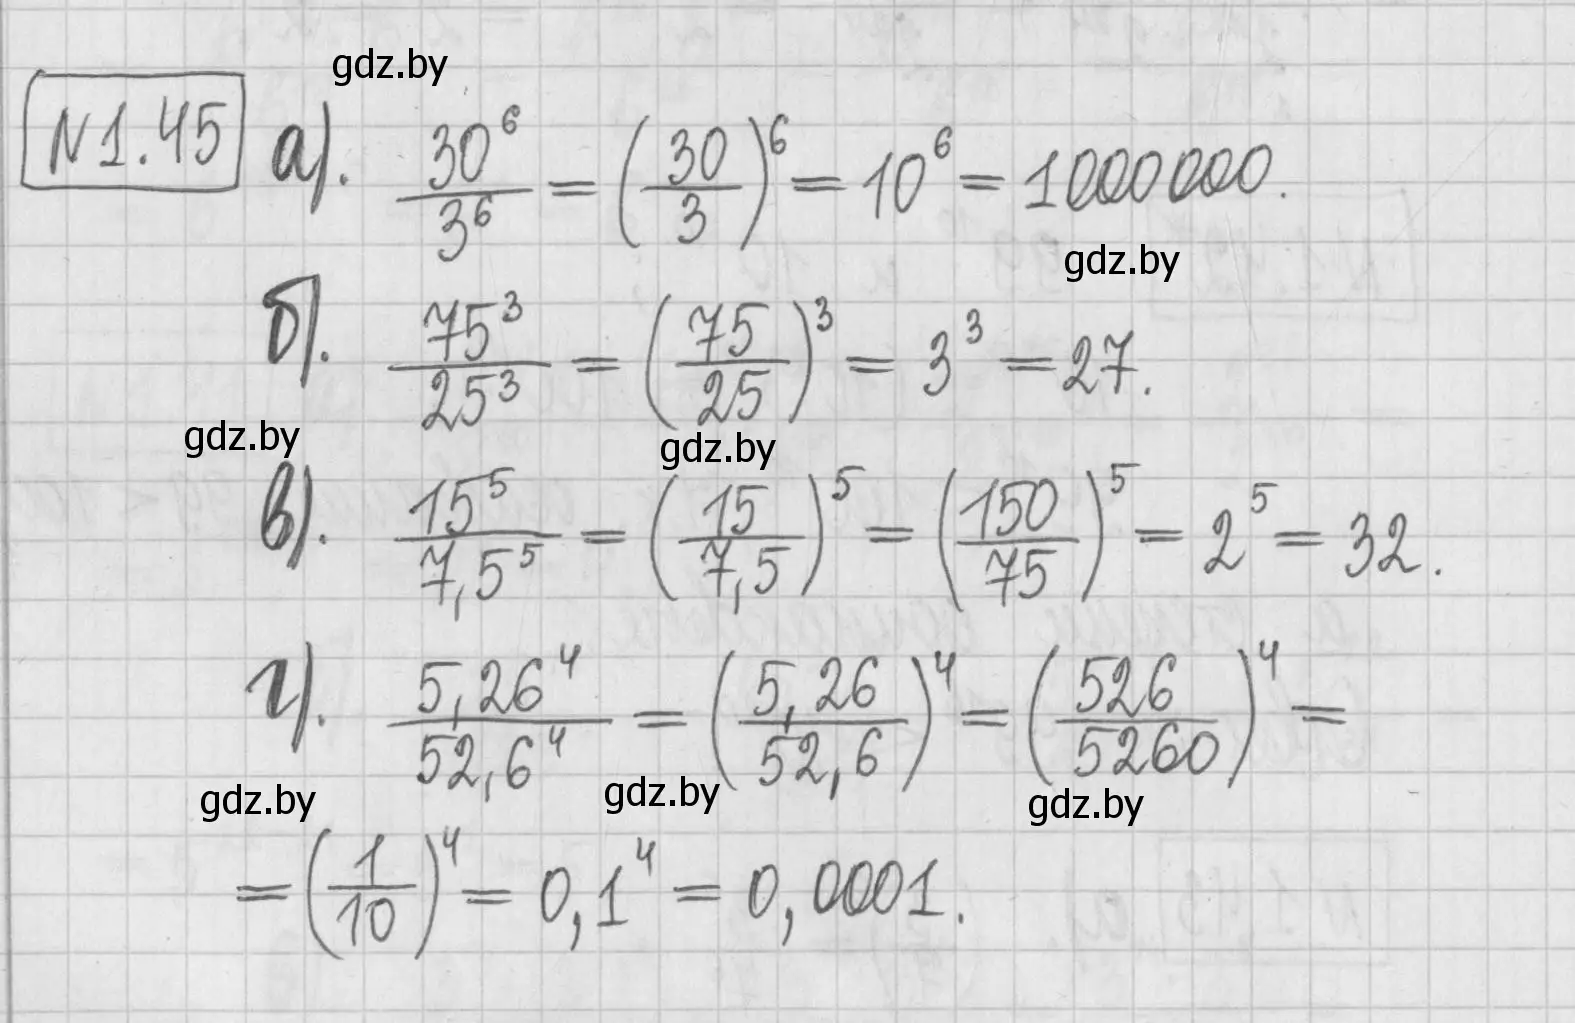 gdz.by
№1.45 а). 30⁶/3⁶ = (30/3)⁶ = 10⁶ = 1000000.
gdz.by
б). 75³/25³ = (75/25)³ = 3³ = 27.
gdz.by gdz.by
в). 15⁵/7,5⁵ = (15/7,5)⁵ = (150/75)⁵ = 2⁵ = 32.
г). 5,26⁴/52,6⁴ = (5,26/52,6)⁴ = (526/5260)⁴ =
gdz.by gdz.by gdz.by
= (1/10)⁴ = 0,1⁴ = 0,0001.